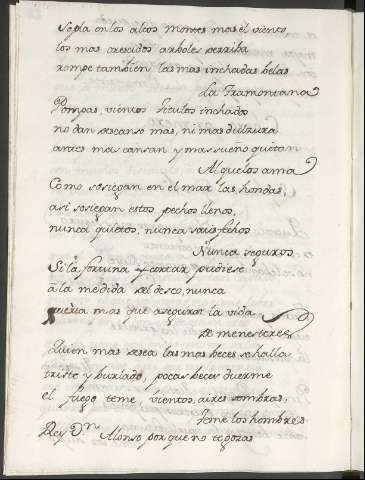 Sopla en los altos montes mas el viento,
los mas crescidos arboles derriba
rompe tambien las mas inchadas belas
La Tramontana
Pompas, vientos titulos inchados
no dan descanso mas, ni mas dulzura
antes mas cansan y mas sueño quitan
Al que los ama
Como sosiegan en el mar las hondas,
asi sosiegan estos pechos llenos,
nunca quietos, nunca satisfechos
Nunca seguros
Si la fortuna y cortar pudiese
a la medida del deseo, nunca
queria mas que asegurar la vida
De menesteres
Quien mas desea las mas beces se halla
triste y burlado, pocas beces duerme
el fuego teme, vientos, aires sombras,
Teme los hombres
Rey Dn Alonso porque no te gozas